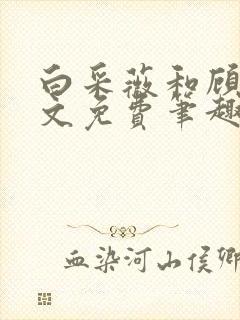 白采薇和顾
文免费笔趣
血染河山侯卿